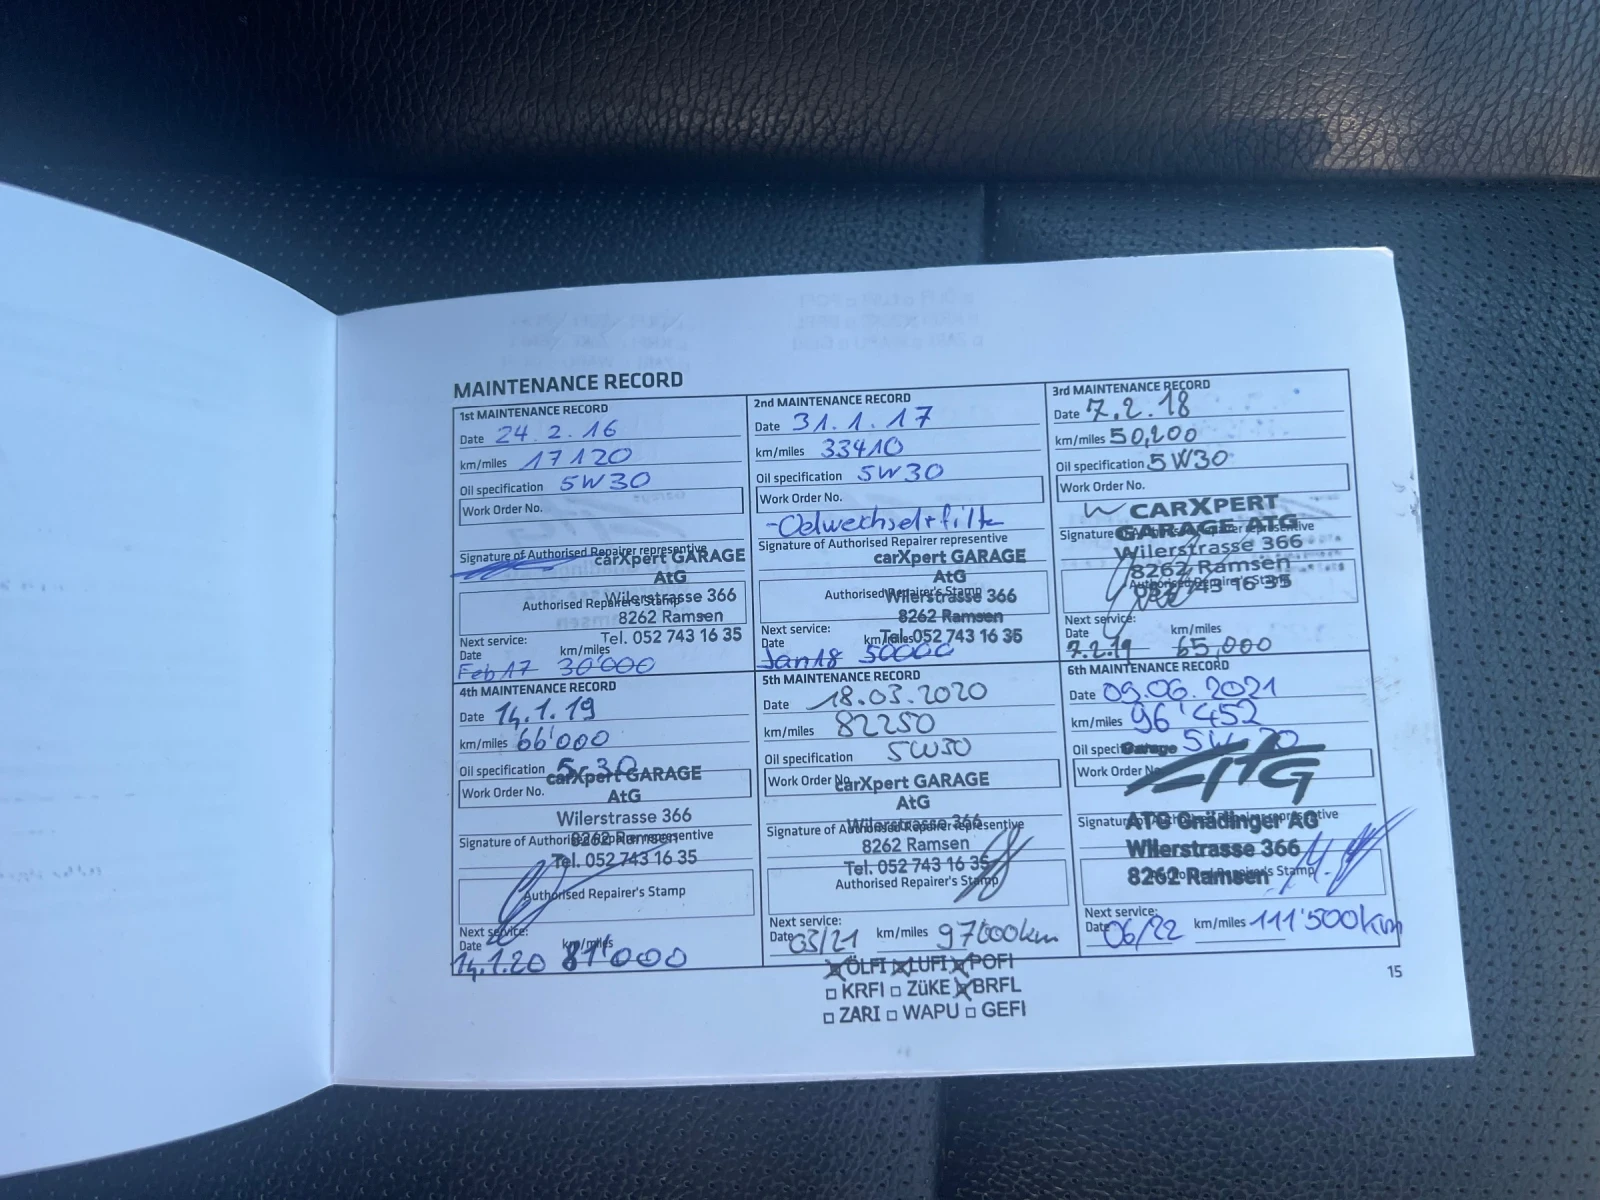 MAINTENANCE RECORD
1st MAINTENANCE RECORD
Date 24.2.16
km/miles 17120
Oil specification 5W30
Work Order No.
Signature of Authorised Repairer representative
carXpert GARAGE
AtG
Wilerstrasse 366
Authorised Repairer's Stamp
8262 Ramsen
Tel. 052 743 16 35
Next service:
Date km/miles
Feb 17 30'000
2nd MAINTENANCE RECORD
Date 31.1.17
km/miles 33410
Oil specification 5W30
Work Order No.
-Oelwechsel+filter
Signature of Authorised Repairer representative
carXpert GARAGE
AtG
Authorised Repairer's Stamp
Wilerstrasse 366
8262 Ramsen
Tel. 052 743 16 35
Next service:
Date km/miles
Jan 18 50000
3rd MAINTENANCE RECORD
Date 7.2.18
km/miles 50,200
Oil specification 5W30
Work Order No.
CARXPERT
GARAGE ATG
Signature of Authorised Repairer representative
Wilerstrasse 366
8262 Ramsen
Authorised Repairer's Stamp
052 743 16 35
Next service:
Date km/miles
7.2.19 65,000
4th MAINTENANCE RECORD
Date 14.1.19
km/miles 66'000
Oil specification 5-30
carXpert GARAGE
Work Order No.
AtG
Wilerstrasse 366
Signature of Authorised Repairer representative
8262 Ramsen
Tel. 052 743 16 35
Authorised Repairer's Stamp
Next service:
Date km/miles
14.1.20 81'000
5th MAINTENANCE RECORD
Date 18.03.2020
km/miles 82250
Oil specification 5W30
Work Order No.
carXpert GARAGE
AtG
Wilerstrasse 366
Signature of Authorised Repairer representative
8262 Ramsen
Tel. 052 743 16 35
Authorised Repairer's Stamp
Next service:
Date 03/21 km/miles 97'000km
☒ ÖLFI ☒ LUFI ☒ POFI
☐ KRFI ☐ ZüKE ☒ BRFL
☐ ZARI ☐ WAPU ☐ GEFI
6th MAINTENANCE RECORD
Date 09.06.2021
km/miles 96'452
Oil specification 5W-30
Garage
Work Order No.
AtG
Signature of Authorised Repairer representative
ATG Gnädinger AG
Wilerstrasse 366
8262 Ramsen
Authorised Repairer's Stamp
Next service:
Date 06/22 km/miles 111'500km
15